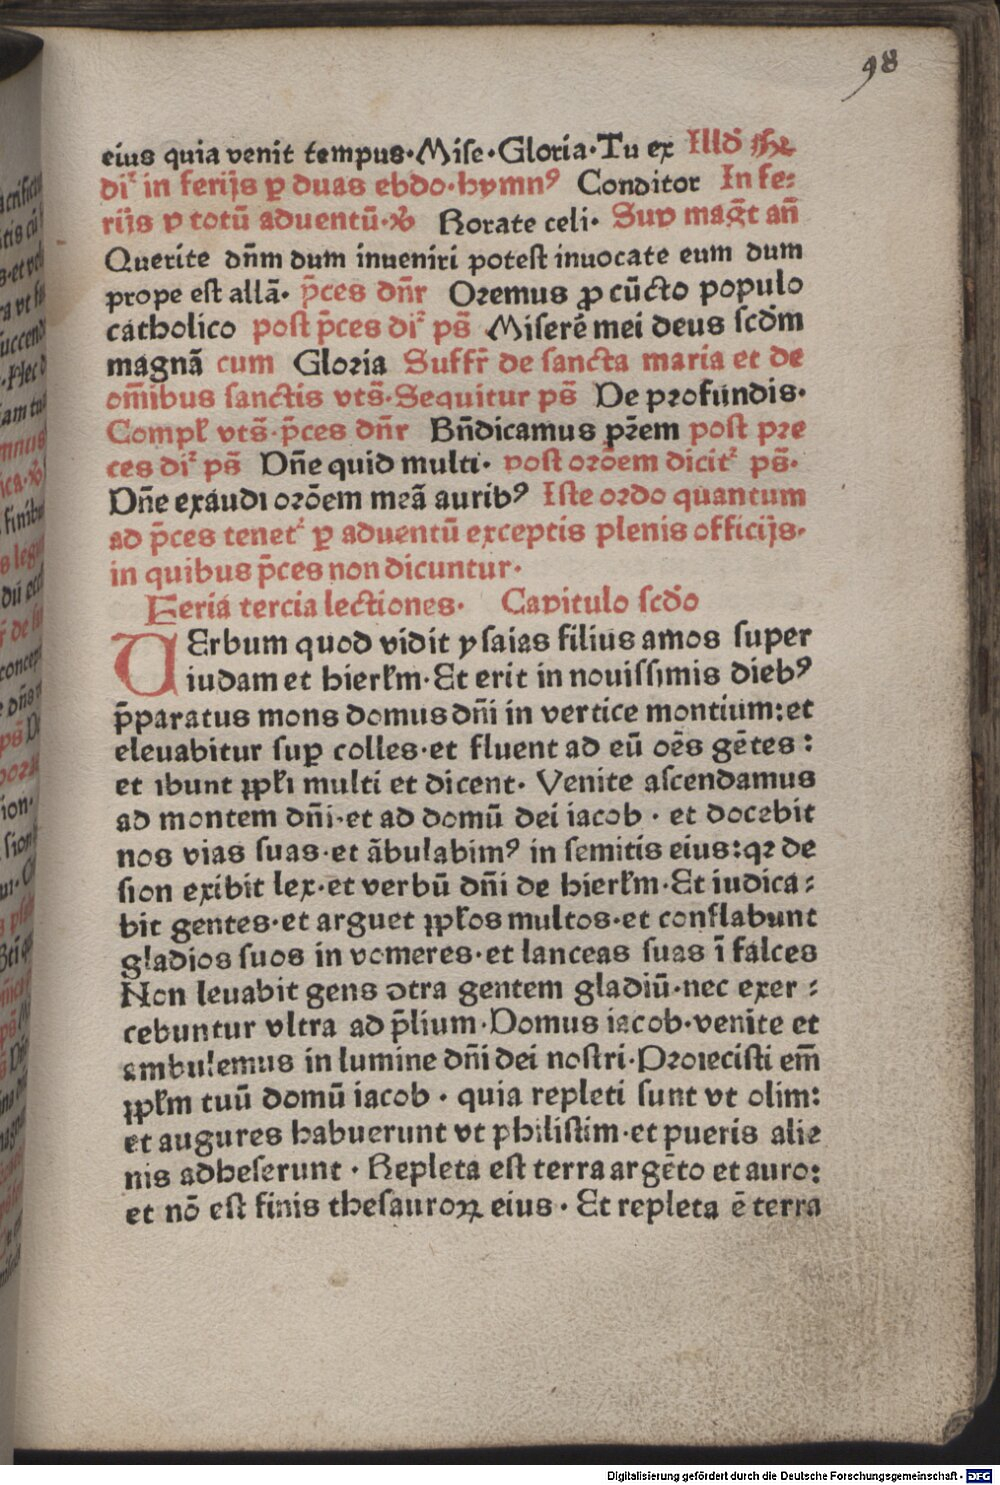 98
eius quia venit tempus·Mise·Gloria·Tu ex Illđ
di᷑ in ferijs ꝑ duas ebdo·hymnꝰ Conditor In fe:
rijs ꝑ totū aduentū· Rorate celi· Sup mag̃t an̄
Querite dn̄m dum inueniri potest inuocate eum dum
prope est allā· p̄ces dn̄r Oremus ꝓ cūcto populo
catholico post p̄ces di᷑ ps̄ Miserē mei deus scđm
magnā cum Gloria Suffr̄ de sancta maria et de
om̄ibus sanctis vts̄·Sequitur ps̄ De profundis·
Compł vts̄·p̄ces dn̄r Bn̄dicamus pr̄em post pre
ces di᷑ ps̄ Dn̄e quid multi· post orōem dicit᷑ ps̄·
Dn̄e exaudi orōem meā auribꝰ Iste ordo quantum
ad p̄ces tenet᷑ ꝑ aduentū exceptis plenis officijs·
in quibus p̄ces non dicuntur·
Feria tercia lectiones· Capitulo scđo
VErbum quod vidit ysaias filius amos super
iudam et hierłm·Et erit in nouissimis diebꝰ
p̄paratus mons domus dn̄i in vertice montium:et
eleuabitur suꝑ colles·et fluent ad eū oēs gētes:
et ibunt ꝓpłi multi et dicent· Venite ascendamus
ad montem dn̄i·et ad domū dei iacob· et docebit
nos vias suas·et ābulabimꝰ in semitis eius:qꝛ de
sion exibit lex·et verbū dn̄i de hierłm·Et iudica:
bit gentes·et arguet ꝓpłos multos·et conflabunt
gladios suos in vomeres·et lanceas suas ī falces
Non leuabit gens ↄtra gentem gladiū·nec exer:
cebuntur vltra ad p̄lium·Domus iacob·venite et
ambulemus in lumine dn̄i dei nostri·Proiecisti em̄
ꝓpłm tuū domū iacob· quia repleti sunt vt olim:
et augures habuerunt vt philistim·et pueris alie
nis adheserunt· Repleta est terra argēto et auro:
et nō est finis thesauroꝝ eius· Et repleta ē terra
Digitalisierung gefördert durch die Deutsche Forschungsgemeinschaft - DFG